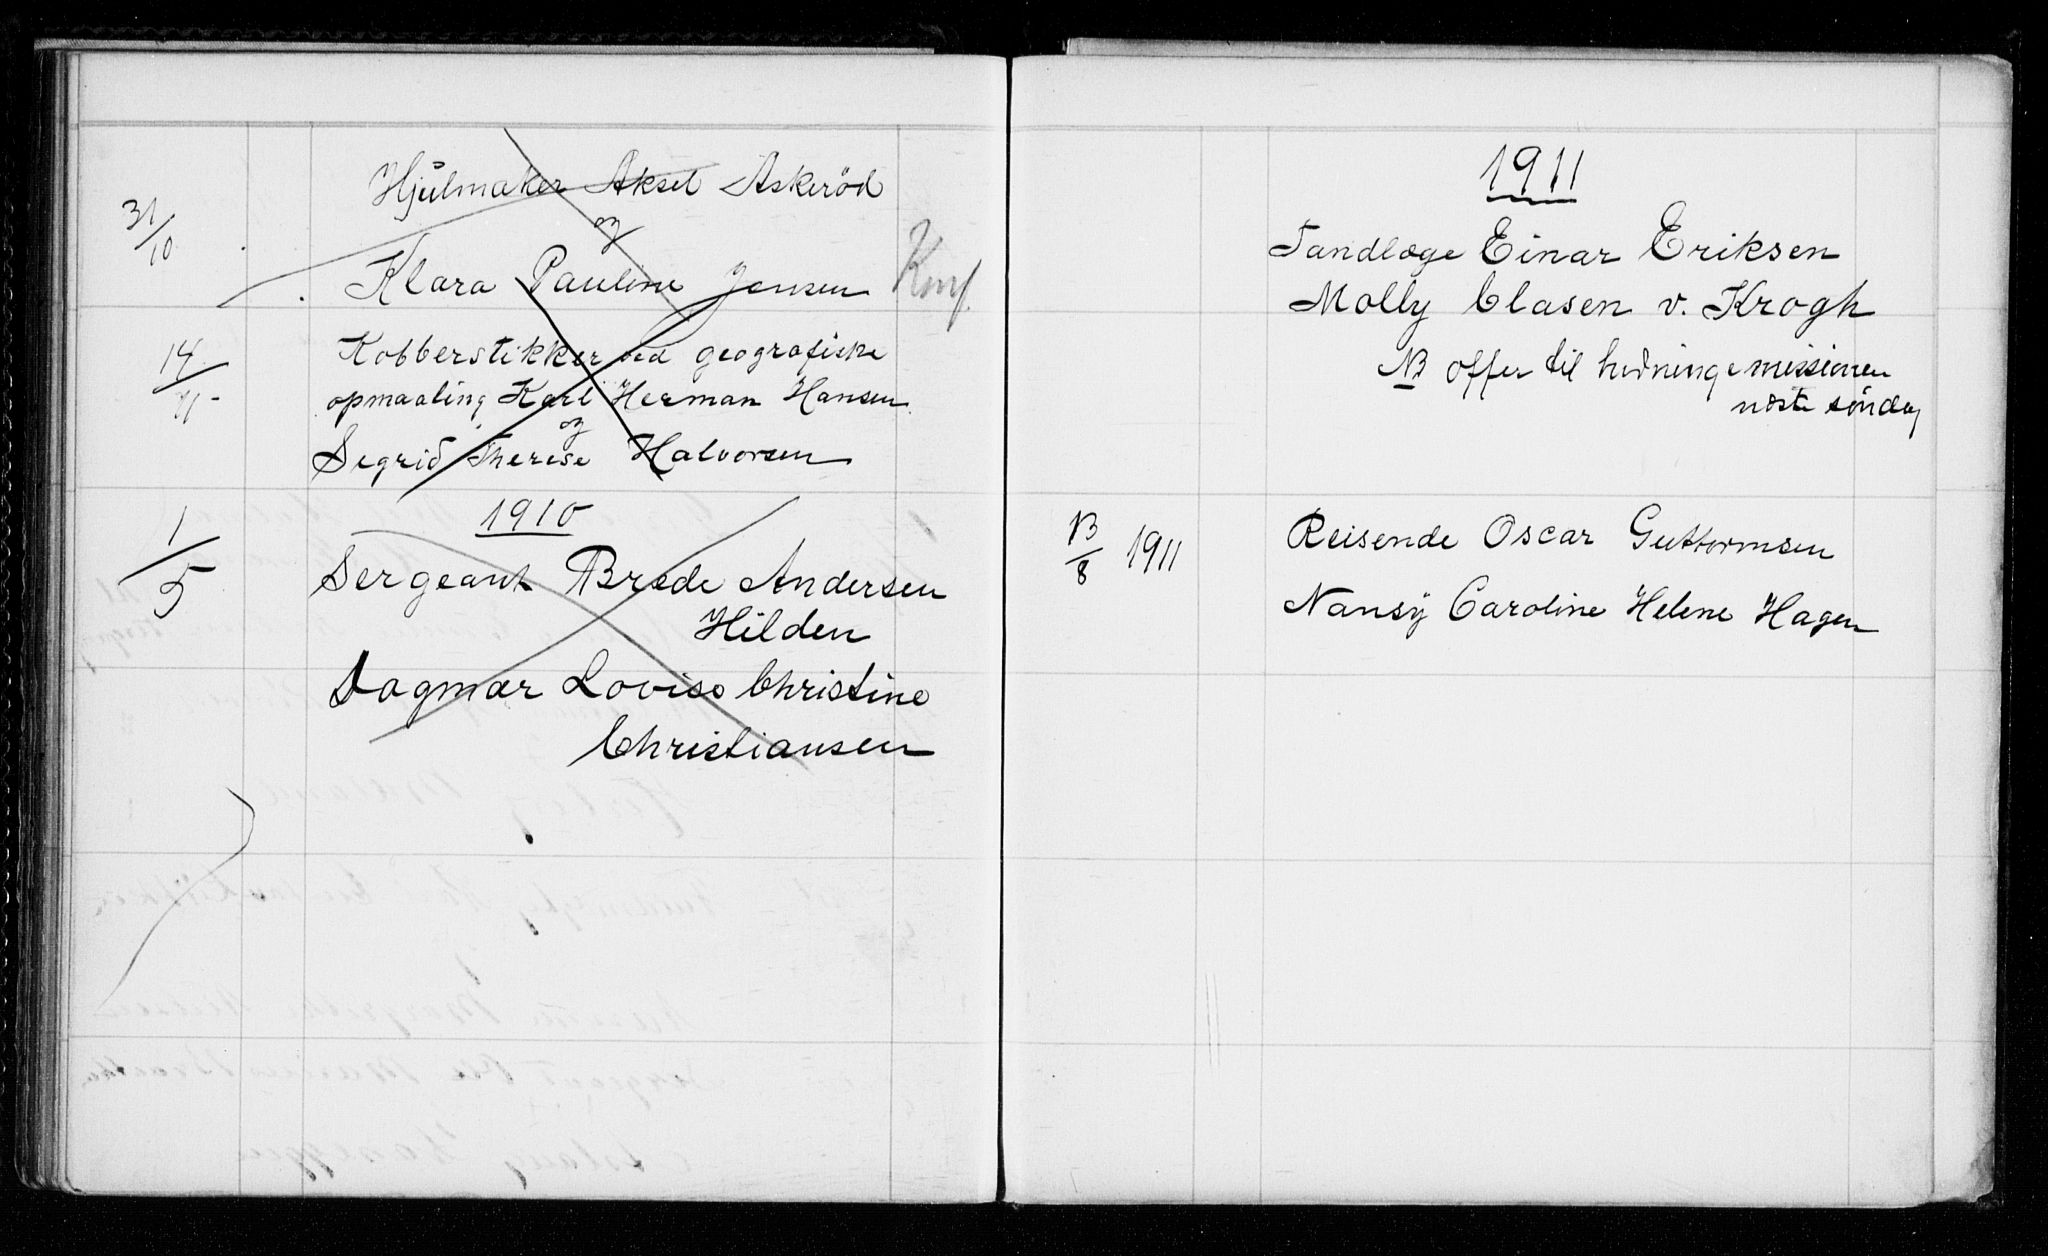 31/10 Hjülmaker Aksel Askeröd
og
Klara Pauline Jensen
14/11 Kobberstikker ved geografiske
opmaaling Karl Herman Hansen
og
Segrid Therese Halvorsen
1910
1/5 Sergeant Brede Andersen
Hilden
Dagmar Lovise Christine
Christiansen
1911
Tandlæge Einar Eriksen
Molly Clasen v. Krogh
NB offer til hedningemissionen
næste söndag
13/8 1911 Reisende Oscar Guttormsen
Nansÿ Caroline Helene Hagen